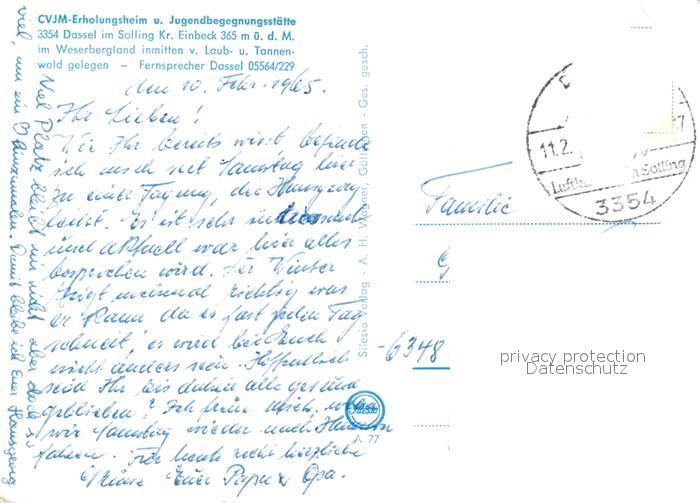 CVJM-Erholungsheim u. Jugendbegegnungsstätte
3354 Dassel im Solling Kr. Einbeck 365 m ü. d. M.
im Weserbergland inmitten v. Laub- u. Tannen-
wald gelegen – Fernsprecher Dassel 05564/229
den 10. Febr. 1965.
Ihr Lieben!
Wie Ihr bereits wisst, befinde
ich mich seit Samstag hier
zu einer Tagung, die Hansgeorg
leitet. Es ist sehr interessant
und aktuell was hier alles
besprochen wird. Der Winter
zeigt nochmal richtig was
er kann, da es fast jeden Tag
schneit, es wird bei Euch
nicht anders sein. Hoffentlich
seid Ihr bis dahin alle gesund
geblieben? Ich freue mich, wenn
wir Samstag wieder nach Hause
fahren. Für heute recht herzliche
Grüsse Euer Papa & Opa.
Viel Platz bleibt mir nicht aber doch so
viel, um ein Damit bleibe ich Euer Hansgeorg
Silesia Verlag - A. H. Wagner, Göttingen - Ges. gesch.
Silesia
77
11.2.
17
Luftku
Solling
3354
Familie
-6348
privacy protection
Datenschutz